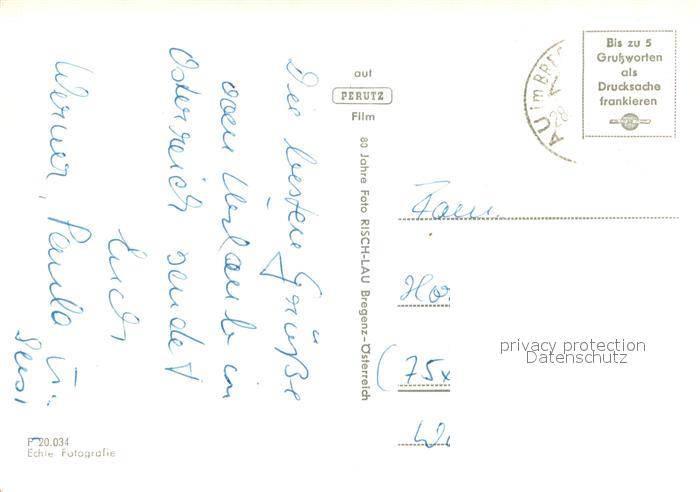 Die besten Grüße
vom Urlaub in
Österreich sendet
Euch
Werner, Paula u.
Susi
auf
PERUTZ
Film
80 Jahre Foto RISCH-LAU Bregenz-Österreich
AU im BREG
28
Bis zu 5
Grußworten
als
Drucksache
frankieren
Fam.
Ho
(75x
privacy protection
Datenschutz
P 20.034
Echte Fotografie